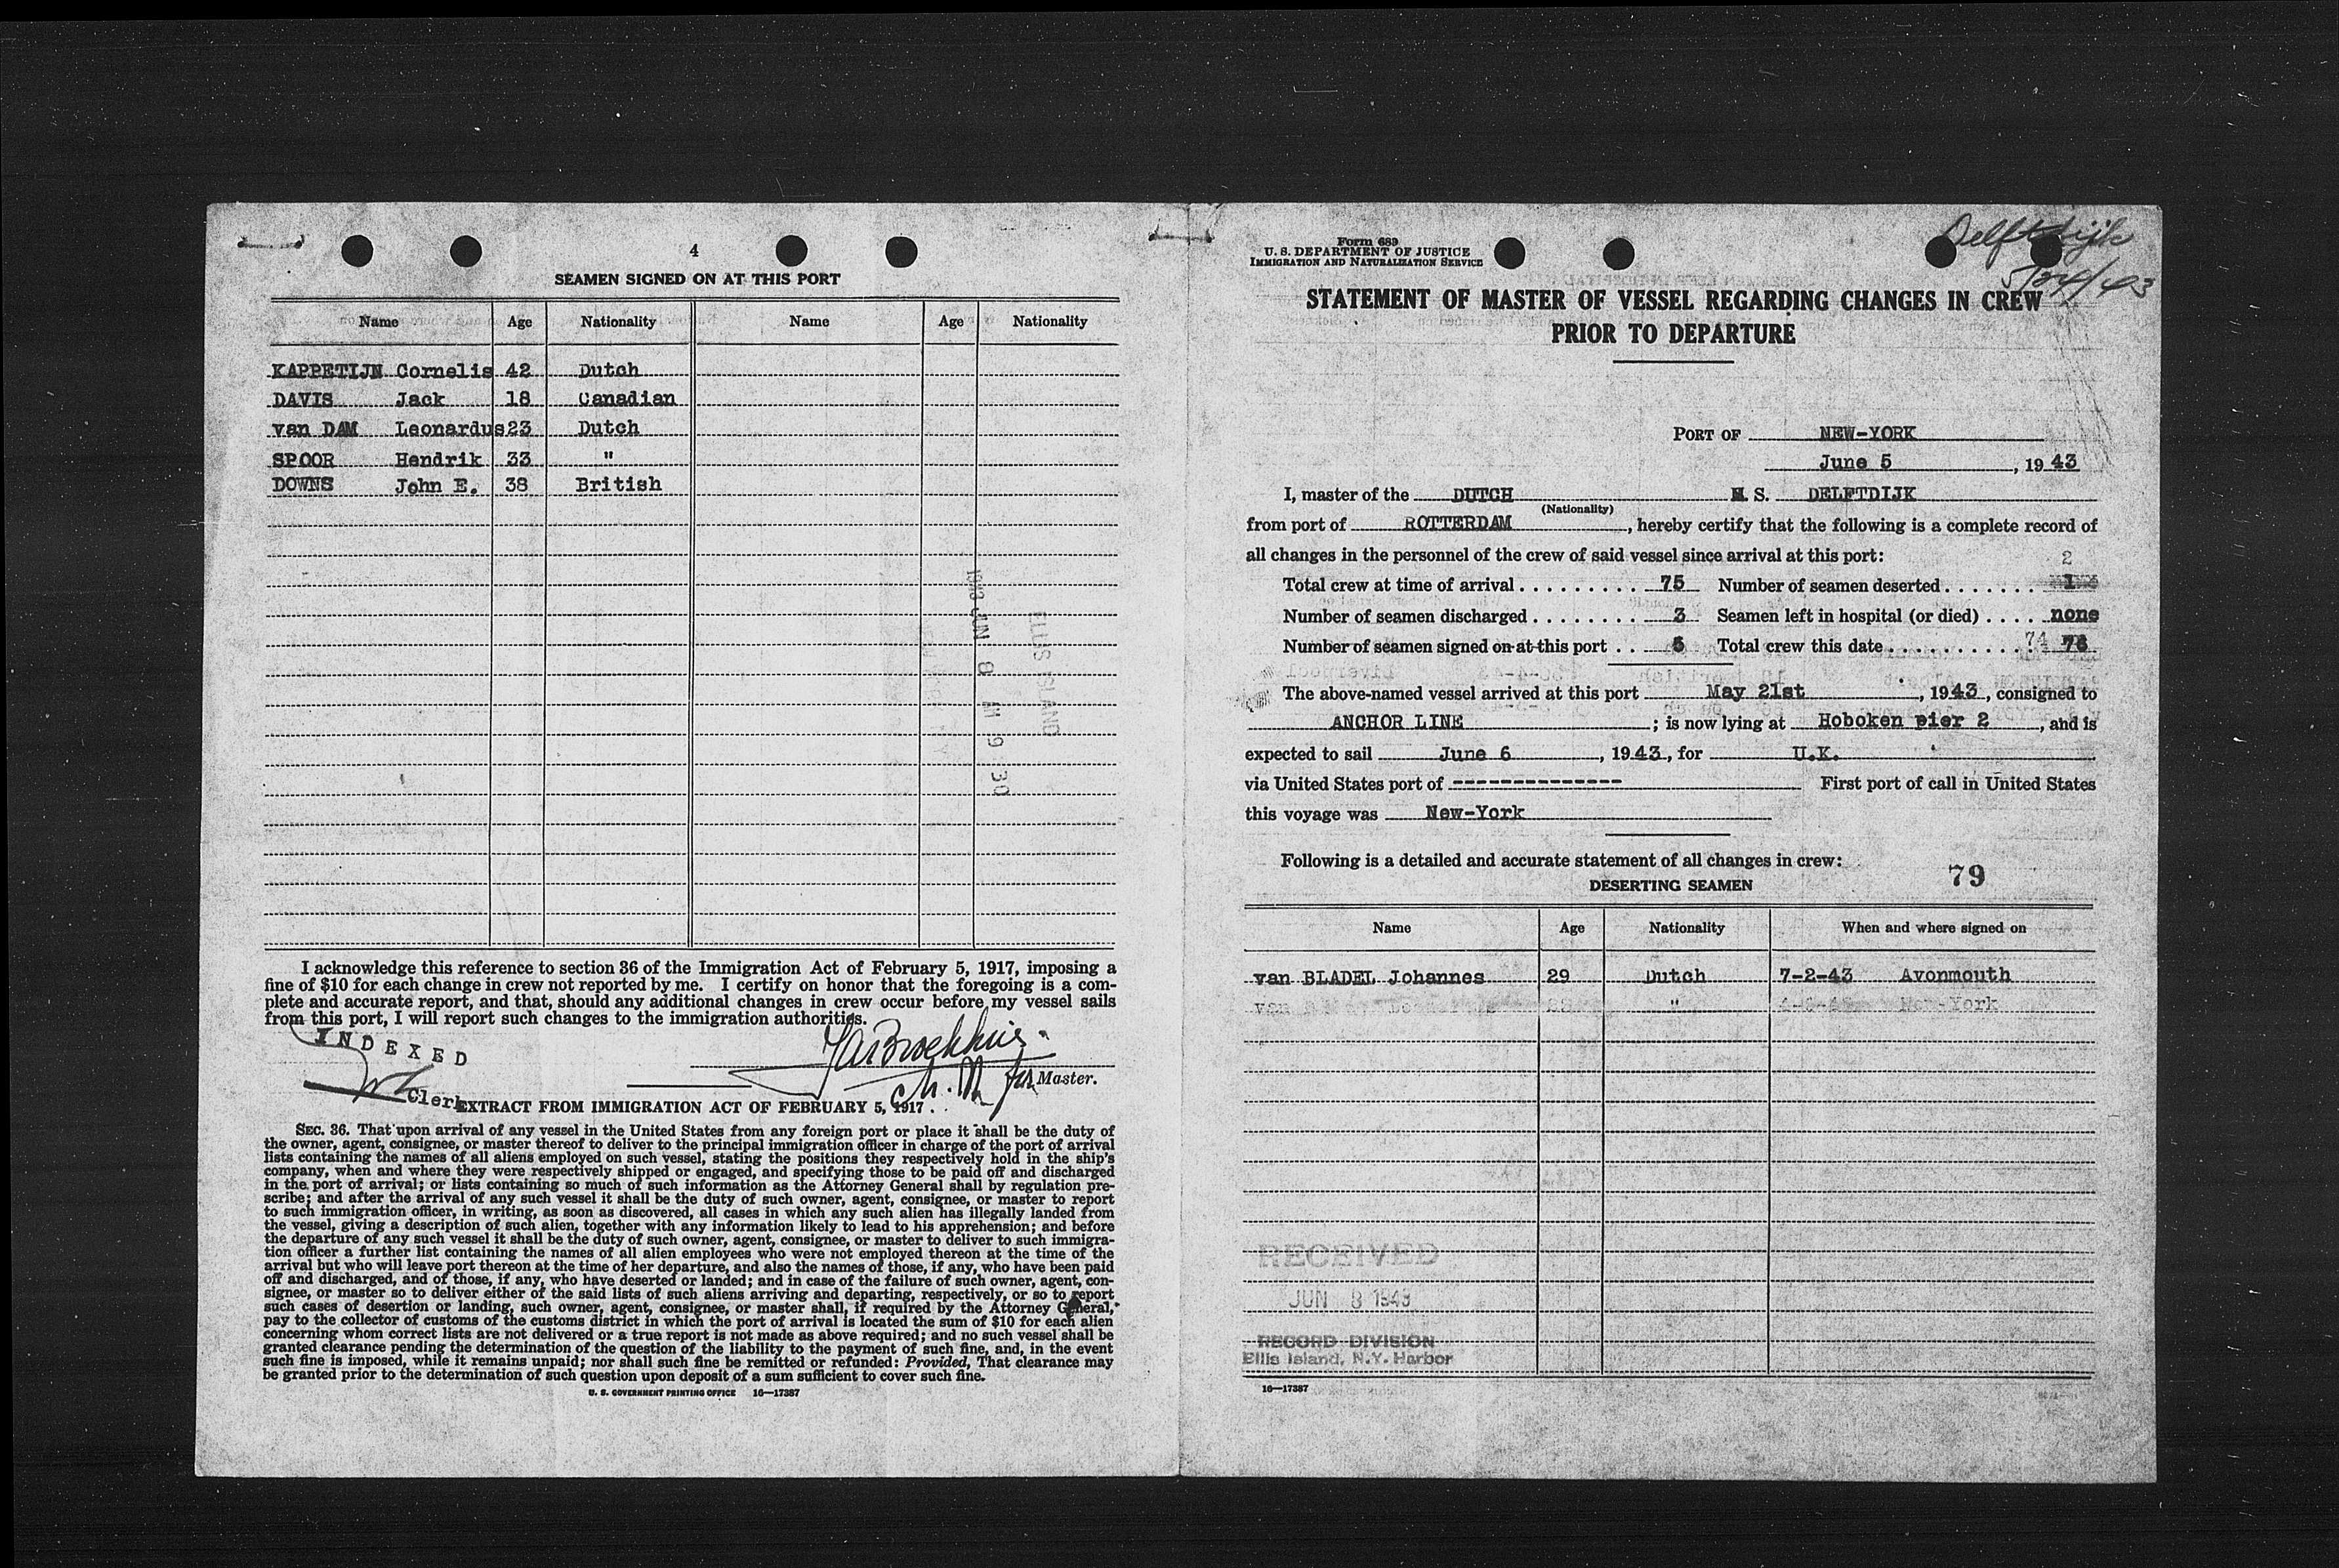 4
SEAMEN SIGNED ON AT THIS PORT
Name Age Nationality Name Age Nationality
KAPPETIJN Cornelis 42 Dutch
DAVIS Jack 18 Canadian
van DAM Leonardus 23 Dutch
SPOOR Hendrik 33 "
DOWNS John E. 38 British
1943 JUN 8 AM 9 30
ELLIS ISLAND
I acknowledge this reference to section 36 of the Immigration Act of February 5, 1917, imposing a
fine of $10 for each change in crew not reported by me. I certify on honor that the foregoing is a com-
plete and accurate report, and that, should any additional changes in crew occur before my vessel sails
from this port, I will report such changes to the immigration authorities.
INDEXED
Master.
Clerk
EXTRACT FROM IMMIGRATION ACT OF FEBRUARY 5, 1917
SEC. 36. That upon arrival of any vessel in the United States from any foreign port or place it shall be the duty of
the owner, agent, consignee, or master thereof to deliver to the principal immigration officer in charge of the port of arrival
lists containing the names of all aliens employed on such vessel, stating the positions they respectively hold in the ship's
company, when and where they were respectively shipped or engaged, and specifying those to be paid off and discharged
in the port of arrival; or lists containing so much of such information as the Attorney General shall by regulation pre-
scribe; and after the arrival of any such vessel it shall be the duty of such owner, agent, consignee, or master to report
to such immigration officer, in writing, as soon as discovered, all cases in which any such alien has illegally landed from
the vessel, giving a description of such alien, together with any information likely to lead to his apprehension; and before
the departure of any such vessel it shall be the duty of such owner, agent, consignee, or master to deliver to such immigra-
tion officer a further list containing the names of all alien employees who were not employed thereon at the time of the
arrival but who will leave port thereon at the time of her departure, and also the names of those, if any, who have been paid
off and discharged, and of those, if any, who have deserted or landed; and in case of the failure of such owner, agent, con-
signee, or master so to deliver either of the said lists of such aliens arriving and departing, respectively, or so to report
such cases of desertion or landing, such owner, agent, consignee, or master shall, if required by the Attorney General,
pay to the collector of customs of the customs district in which the port of arrival is located the sum of $10 for each alien
concerning whom correct lists are not delivered or a true report is not made as above required; and no such vessel shall be
granted clearance pending the determination of the question of the liability to the payment of such fine, and, in the event
such fine is imposed, while it remains unpaid; nor shall such fine be remitted or refunded: Provided, That clearance may
be granted prior to the determination of such question upon deposit of a sum sufficient to cover such fine.
U. S. GOVERNMENT PRINTING OFFICE 16—17387
Form 689
U. S. DEPARTMENT OF JUSTICE
IMMIGRATION AND NATURALIZATION SERVICE
Delftdijk
STATEMENT OF MASTER OF VESSEL REGARDING CHANGES IN CREW
PRIOR TO DEPARTURE
PORT OF NEW-YORK
June 5, 1943
I, master of the DUTCH M. S. DELFTDIJK
(Nationality)
from port of ROTTERDAM, hereby certify that the following is a complete record of
all changes in the personnel of the crew of said vessel since arrival at this port: 2
Total crew at time of arrival . . . . . . . . . . 75 Number of seamen deserted . . . . . . . 1
Number of seamen discharged . . . . . . . . 3 Seamen left in hospital (or died) . . . . none
Number of seamen signed on at this port . . 5 Total crew this date . . . . . . . . . . . 74 76
The above-named vessel arrived at this port May 21st, 1943, consigned to
ANCHOR LINE; is now lying at Hoboken pier 2, and is
expected to sail June 6, 1943, for U.K.
via United States port of -------------- First port of call in United States
this voyage was New-York
Following is a detailed and accurate statement of all changes in crew:
79
DESERTING SEAMEN
Name Age Nationality When and where signed on
van BLADEL Johannes 29 Dutch 7-2-43 Avonmouth
van " New-York
RECEIVED
JUN 8 1943
RECORD DIVISION
Ellis Island, N.Y. Harbor
16—17387